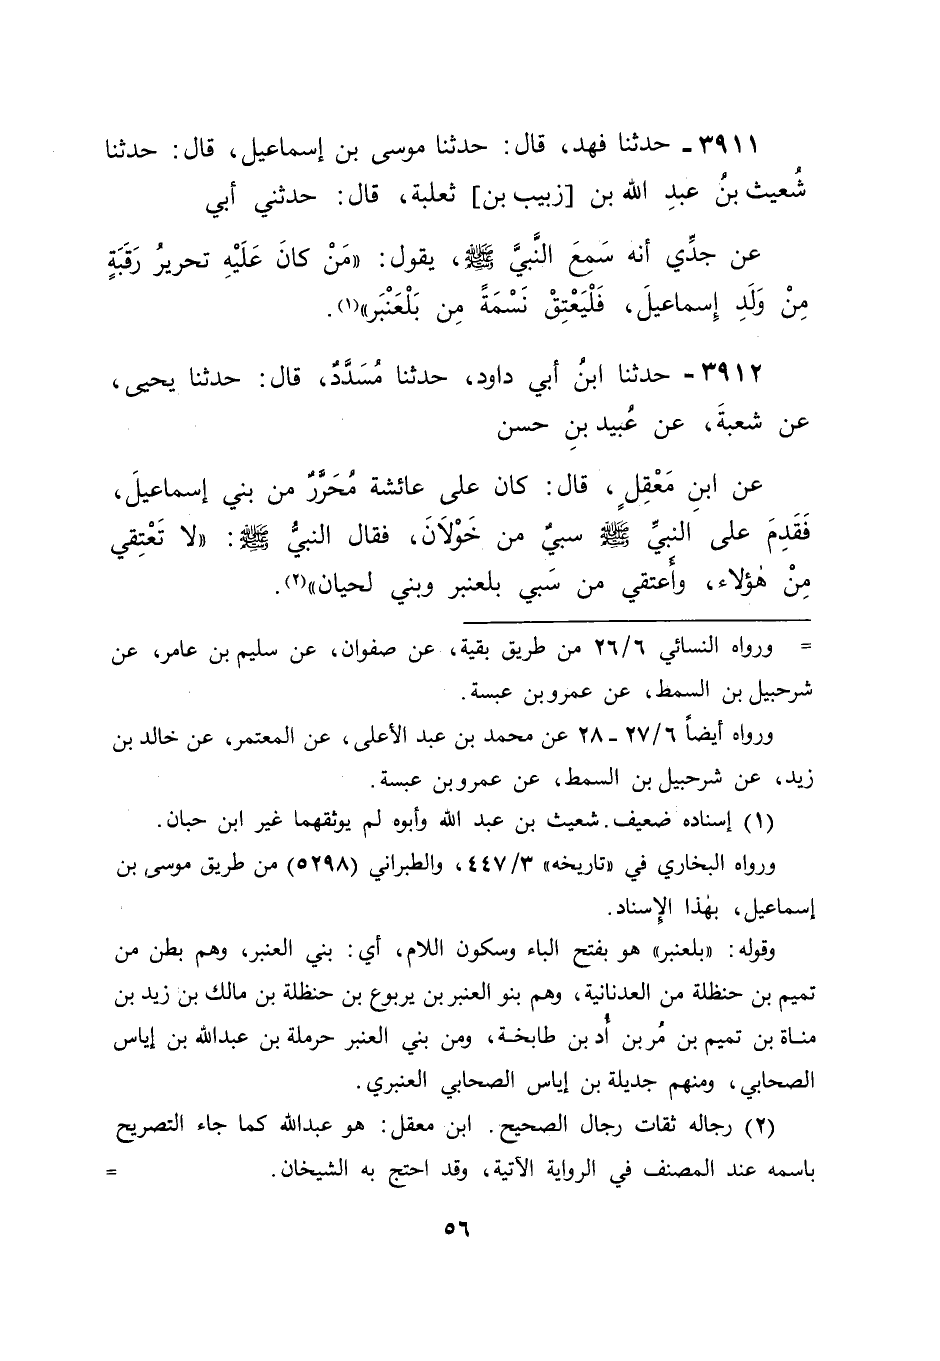 ٣٩١١ - حدثنا فهد، قال: حدثنا موسى بن إسماعيل، قال: حدثنا
شُعيث بنُ عبدِ الله بن [زبيب بن] ثعلبة، قال: حدثني أبي
عن جدِّي أنه سَمِعَ النَّبيَّ ﷺ، يقول: «مَنْ كانَ عَلَيْهِ تحريرُ رَقَبَةٍ
مِنْ وَلَدِ إِسماعيلَ، فَلْيَعْتِقْ نَسْمَةً مِن بَلْعَنْبَر»(١).
٣٩١٢ - حدثنا ابنُ أبي داود، حدثنا مُسَدَّدٌ، قال: حدثنا يحيى،
عن شعبةَ، عن عُبيد بنِ حسن
عن ابنِ مَعْقِلٍ، قال: كان على عائشة مُحَرَّرٌ من بني إسماعيلَ،
فَقَدِمَ على النبيِّ ﷺ سبيٌ من خَوْلَانَ، فقال النبيُّ ﷺ: «لا تَعْتِقي
مِنْ هٰؤلاء، وأَعتقي من سَبي بلعنبر وبني لحيان»(٢).
= ورواه النسائي ٢٦/٦ من طريق بقية، عن صفوان، عن سليم بن عامر، عن
شرحبيل بن السمط، عن عمرو بن عبسة.
ورواه أيضاً ٢٧/٦ - ٢٨ عن محمد بن عبد الأعلى، عن المعتمر، عن خالد بن
زيد، عن شرحبيل بن السمط، عن عمرو بن عبسة.
(١) إسناده ضعيف. شعيث بن عبد الله وأبوه لم يوثقهما غير ابن حبان.
ورواه البخاري في «تاريخه» ٤٤٧/٣، والطبراني (٥٢٩٨) من طريق موسى بن
إسماعيل، بهٰذا الإسناد.
وقوله: «بلعنبر» هو بفتح الباء وسكون اللام، أي: بني العنبر، وهم بطن من
تميم بن حنظلة من العدنانية، وهم بنو العنبر بن يربوع بن حنظلة بن مالك بن زيد بن
مناة بن تميم بن مُر بن أُد بن طابخة، ومن بني العنبر حرملة بن عبدالله بن إياس
الصحابي، ومنهم جديلة بن إياس الصحابي العنبري.
(٢) رجاله ثقات رجال الصحيح. ابن معقل: هو عبدالله كما جاء التصريح
باسمه عند المصنف في الرواية الآتية، وقد احتج به الشيخان. =
٥٦